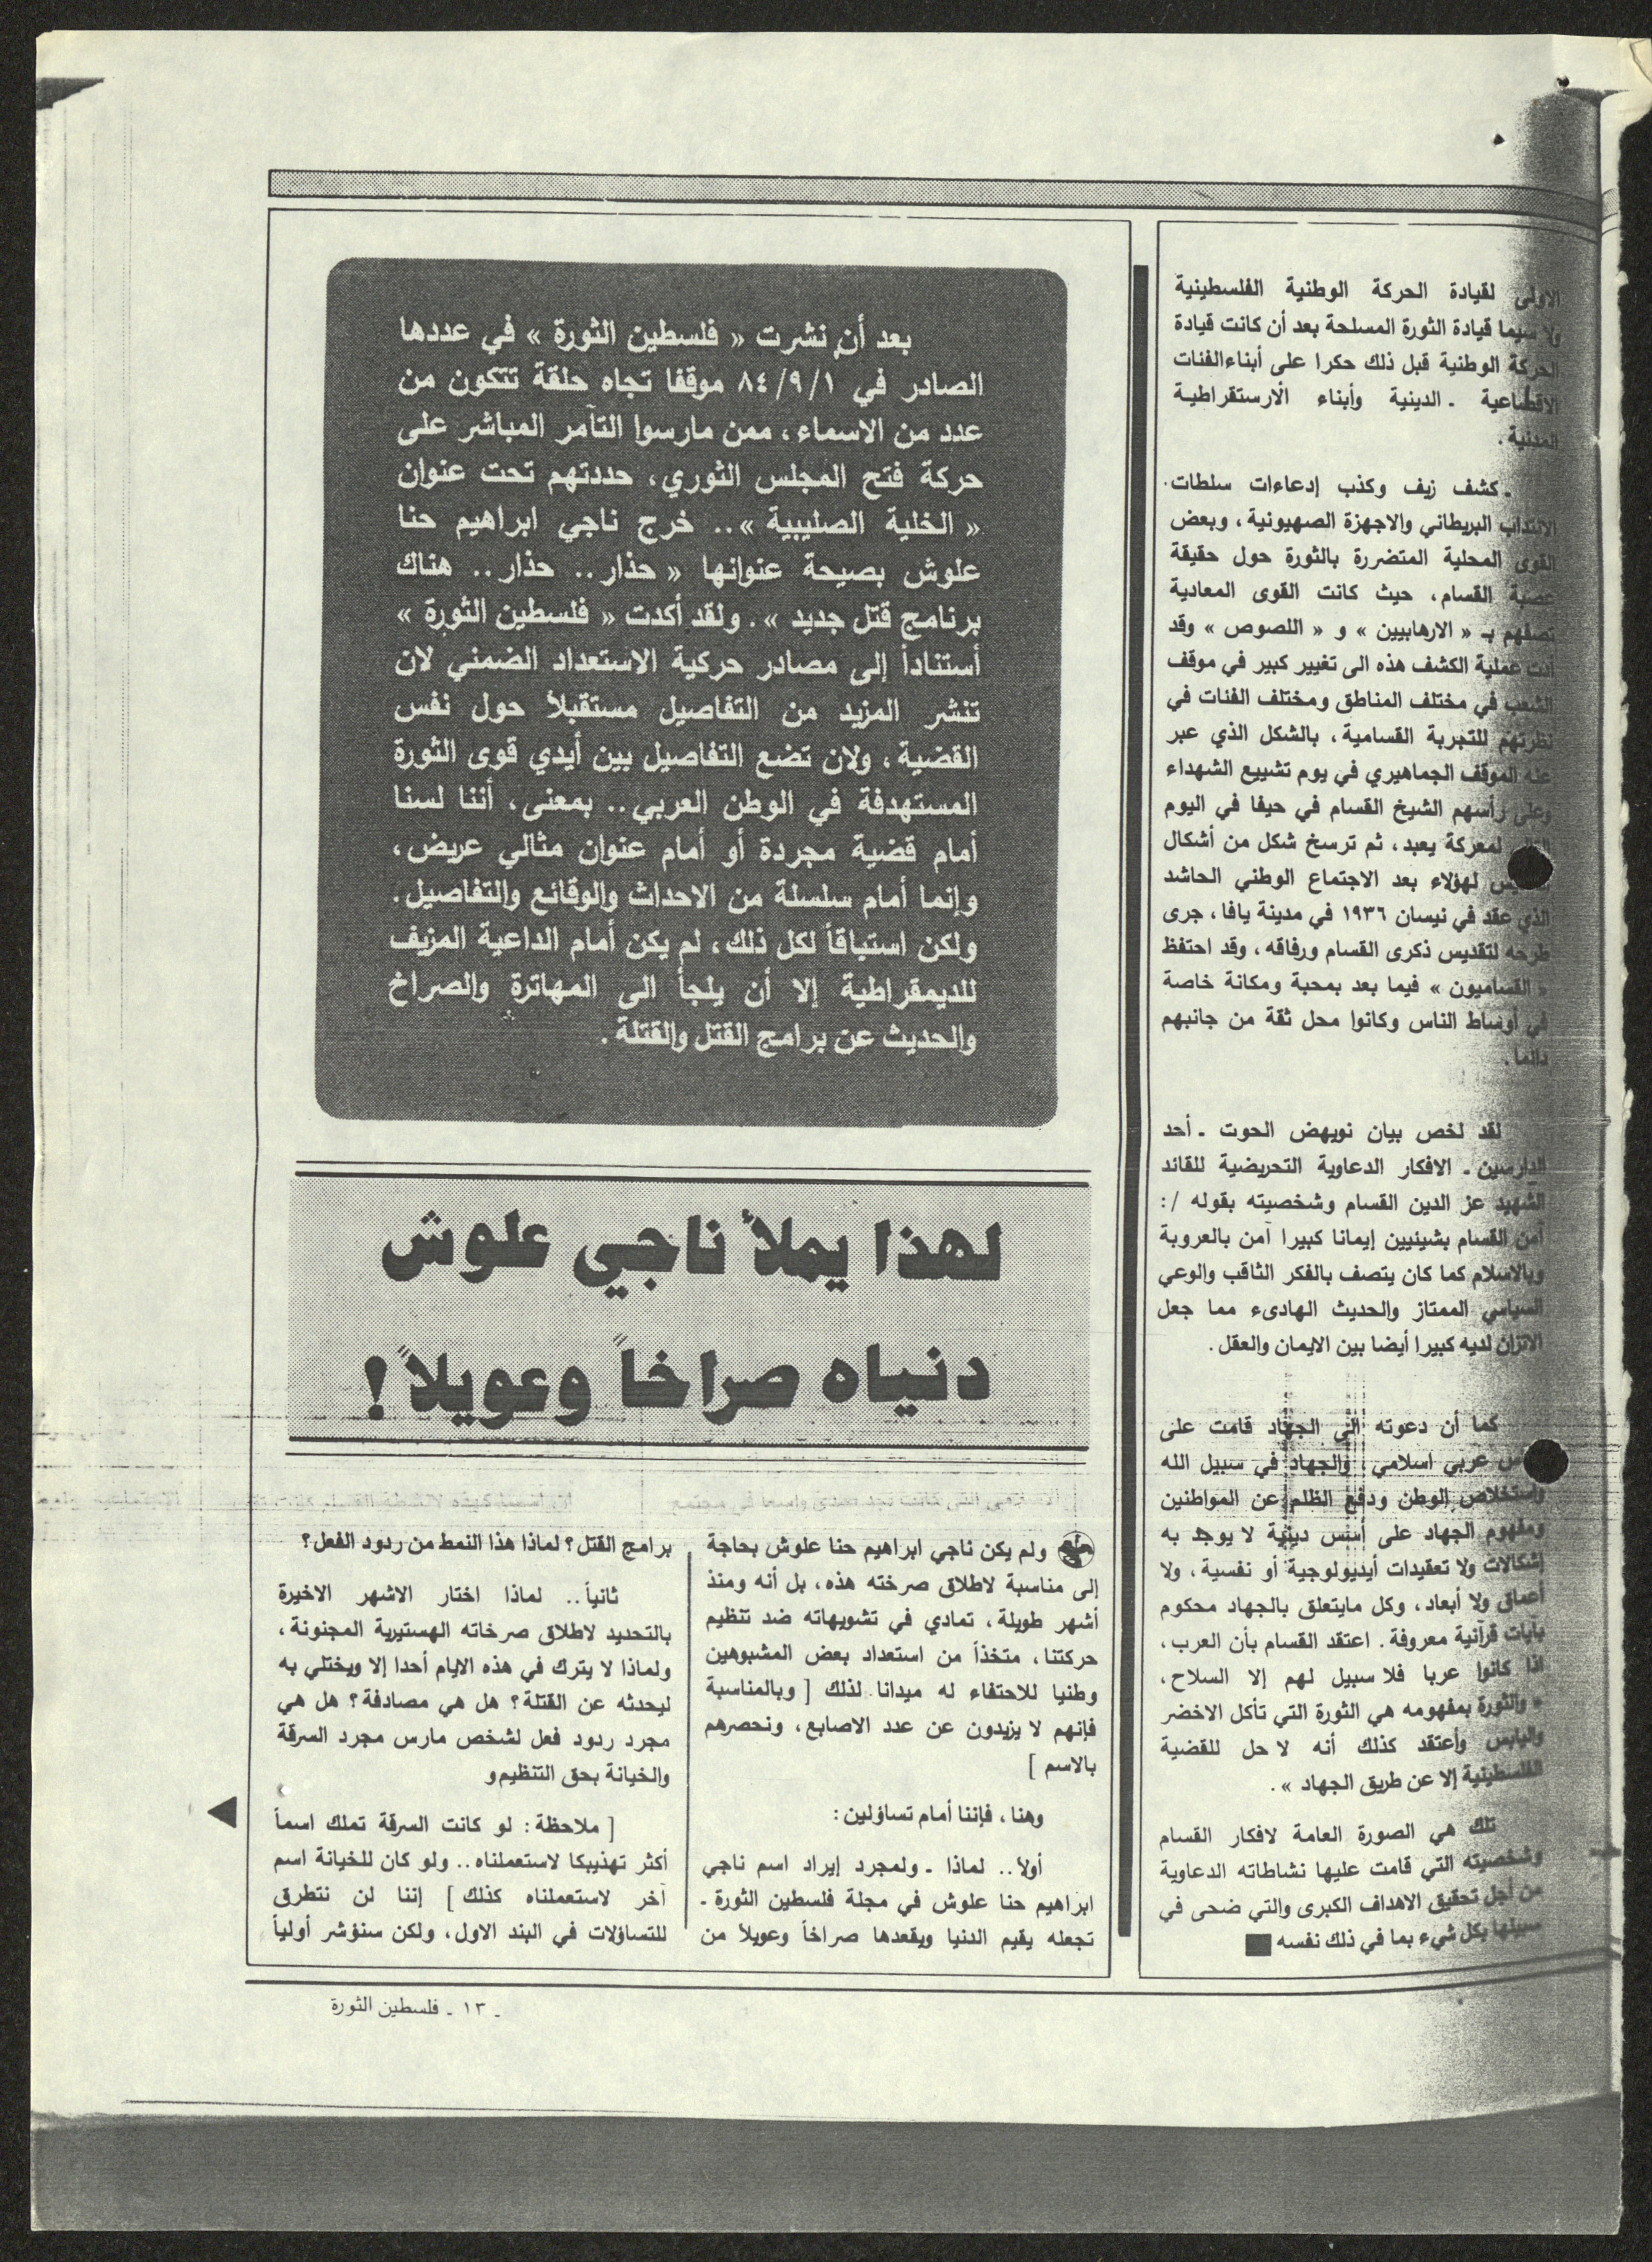 الاولى لقيادة الحركة الوطنية الفلسطينية
ولا سيما قيادة الثورة المسلحة بعد أن كانت قيادة
الحركة الوطنية قبل ذلك حكرا على أبناء الفئات
الاقطاعية ـ الدينية وأبناء الأرستقراطية
المدنية .
ـ كشف زيف وكذب إدعاءات سلطات
الانتداب البريطاني والاجهزة الصهيونية ، وبعض
القوى المحلية المتضررة بالثورة حول حقيقة
عصبة القسام ، حيث كانت القوى المعادية
تصفهم بـ « الارهابيين » و « اللصوص » وقد
أدت عملية الكشف هذه الى تغيير كبير في موقف
الشعب في مختلف المناطق ومختلف الفئات في
نظرتهم للتجربة القسامية ، بالشكل الذي عبر
عنه الموقف الجماهيري في يوم تشييع الشهداء
وعلى رأسهم الشيخ القسام في حيفا في اليوم
لمعركة يعبد ، ثم ترسخ شكل من أشكال
لهؤلاء بعد الاجتماع الوطني الحاشد
الذي عقد في نيسان ١٩٣٦ في مدينة يافا ، جرى
طرحه لتقديس ذكرى القسام ورفاقه ، وقد احتفظ
« القساميون » فيما بعد بمحبة ومكانة خاصة
في أوساط الناس وكانوا محل ثقة من جانبهم
دائما .
لقد لخص بيان نويهض الحوت ـ أحد
الدارسين ـ الافكار الدعاوية التحريضية للقائد
الشهيد عز الدين القسام وشخصيته بقوله / :
آمن القسام بشيئيين إيمانا كبيرا آمن بالعروبة
وبالاسلام كما كان يتصف بالفكر الثاقب والوعي
السياسي الممتاز والحديث الهادىء مما جعل
الاتزان لديه كبيرا أيضا بين الايمان والعقل .
كما أن دعوته الى الجهاد قامت على
عربي اسلامي ، والجهاد في سبيل الله
واستخلاص الوطن ودفع الظلم عن المواطنين
ومفهوم الجهاد على أسس دينية لا يوجد به
إشكالات ولا تعقيدات أيديولوجية أو نفسية ، ولا
أعماق ولا أبعاد ، وكل مايتعلق بالجهاد محكوم
بآيات قرآنية معروفة . اعتقد القسام بأن العرب ،
اذا كانوا عربا فلا سبيل لهم إلا السلاح ،
« والثورة بمفهومه هي الثورة التي تأكل الاخضر
واليابس وأعتقد كذلك أنه لا حل للقضية
الفلسطينية إلا عن طريق الجهاد » .
تلك هي الصورة العامة لافكار القسام
وشخصيته التي قامت عليها نشاطاته الدعاوية
من أجل تحقيق الاهداف الكبرى والتي ضحى في
سبيلها بكل شيء بما في ذلك نفسه ■
بعد أن نشرت « فلسطين الثورة » في عددها
الصادر في ٨٤/٩/١ موقفا تجاه حلقة تتكون من
عدد من الاسماء ، ممن مارسوا التآمر المباشر على
حركة فتح المجلس الثوري ، حددتهم تحت عنوان
« الخلية الصليبية » .. خرج ناجي ابراهيم حنا
علوش بصيحة عنوانها « حذار .. حذار .. هناك
برنامج قتل جديد » . ولقد أكدت « فلسطين الثورة »
أستناداً إلى مصادر حركية الاستعداد الضمني لان
تنشر المزيد من التفاصيل مستقبلاً حول نفس
القضية ، ولان تضع التفاصيل بين أيدي قوى الثورة
المستهدفة في الوطن العربي .. بمعنى ، أننا لسنا
أمام قضية مجردة أو أمام عنوان مثالي عريض ،
وإنما أمام سلسلة من الاحداث والوقائع والتفاصيل .
ولكن استباقاً لكل ذلك ، لم يكن أمام الداعية المزيف
للديمقراطية إلا أن يلجأ الى المهاترة والصراخ
والحديث عن برامج القتل والقتلة .
لهذا يملأ ناجي علوش
دنياه صراخاً وعويلاً !
ولم يكن ناجي ابراهيم حنا علوش بحاجة
إلى مناسبة لاطلاق صرخته هذه ، بل أنه ومنذ
أشهر طويلة ، تمادي في تشويهاته ضد تنظيم
حركتنا ، متخذاً من استعداد بعض المشبوهين
وطنيا للاحتفاء له ميدانا لذلك [ وبالمناسبة
فإنهم لا يزيدون عن عدد الاصابع ، ونحصرهم
بالاسم ]
وهنا ، فإننا أمام تساؤلين :
أولاً .. لماذا ـ ولمجرد إيراد اسم ناجي
ابراهيم حنا علوش في مجلة فلسطين الثورة ـ
تجعله يقيم الدنيا ويقعدها صراخاً وعويلاً من
برامج القتل ؟ لماذا هذا النمط من ردود الفعل ؟
ثانياً .. لماذا اختار الاشهر الاخيرة
بالتحديد لاطلاق صرخاته الهستيرية المجنونة ،
ولماذا لا يترك في هذه الايام أحدا إلا ويختلي به
ليحدثه عن القتلة ؟ هل هي مصادفة ؟ هل هي
مجرد ردود فعل لشخص مارس مجرد السرقة
والخيانة بحق التنظيم و
[ ملاحظة : لو كانت السرقة تملك اسماً
أكثر تهذيبكا لاستعملناه .. ولو كان للخيانة اسم
آخر لاستعملناه كذلك ] إننا لن نتطرق
للتساؤلات في البند الاول ، ولكن سنؤشر أولياً
ـ ١٣ ـ فلسطين الثورة